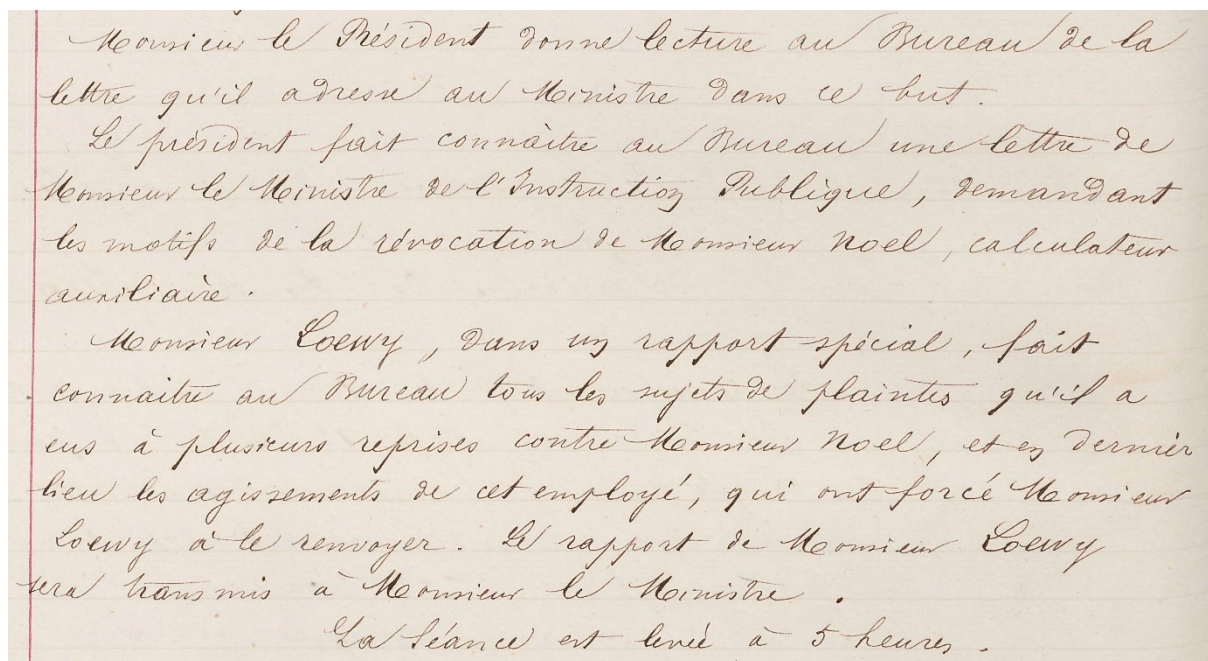 Monsieur le Président donne lecture au Bureau de la
lettre qu'il adresse au Ministre dans ce but.
Le président fait connaître au Bureau une lettre de
Monsieur le Ministre de l'Instruction Publique, demandant
les motifs de la révocation de Monsieur Noel, calculateur
auxiliaire.
Monsieur Loewy, dans un rapport spécial, fait
connaitre au Bureau tous les sujets de plaintes qu'il a
eus à plusieurs reprises contre Monsieur Noel, et en dernier
lieu les agissements de cet employé, qui ont forcé Monsieur
Loewy à le renvoyer. Le rapport de Monsieur Loewy
sera transmis à Monsieur le Ministre.
La Séance est levée à 5 heures.